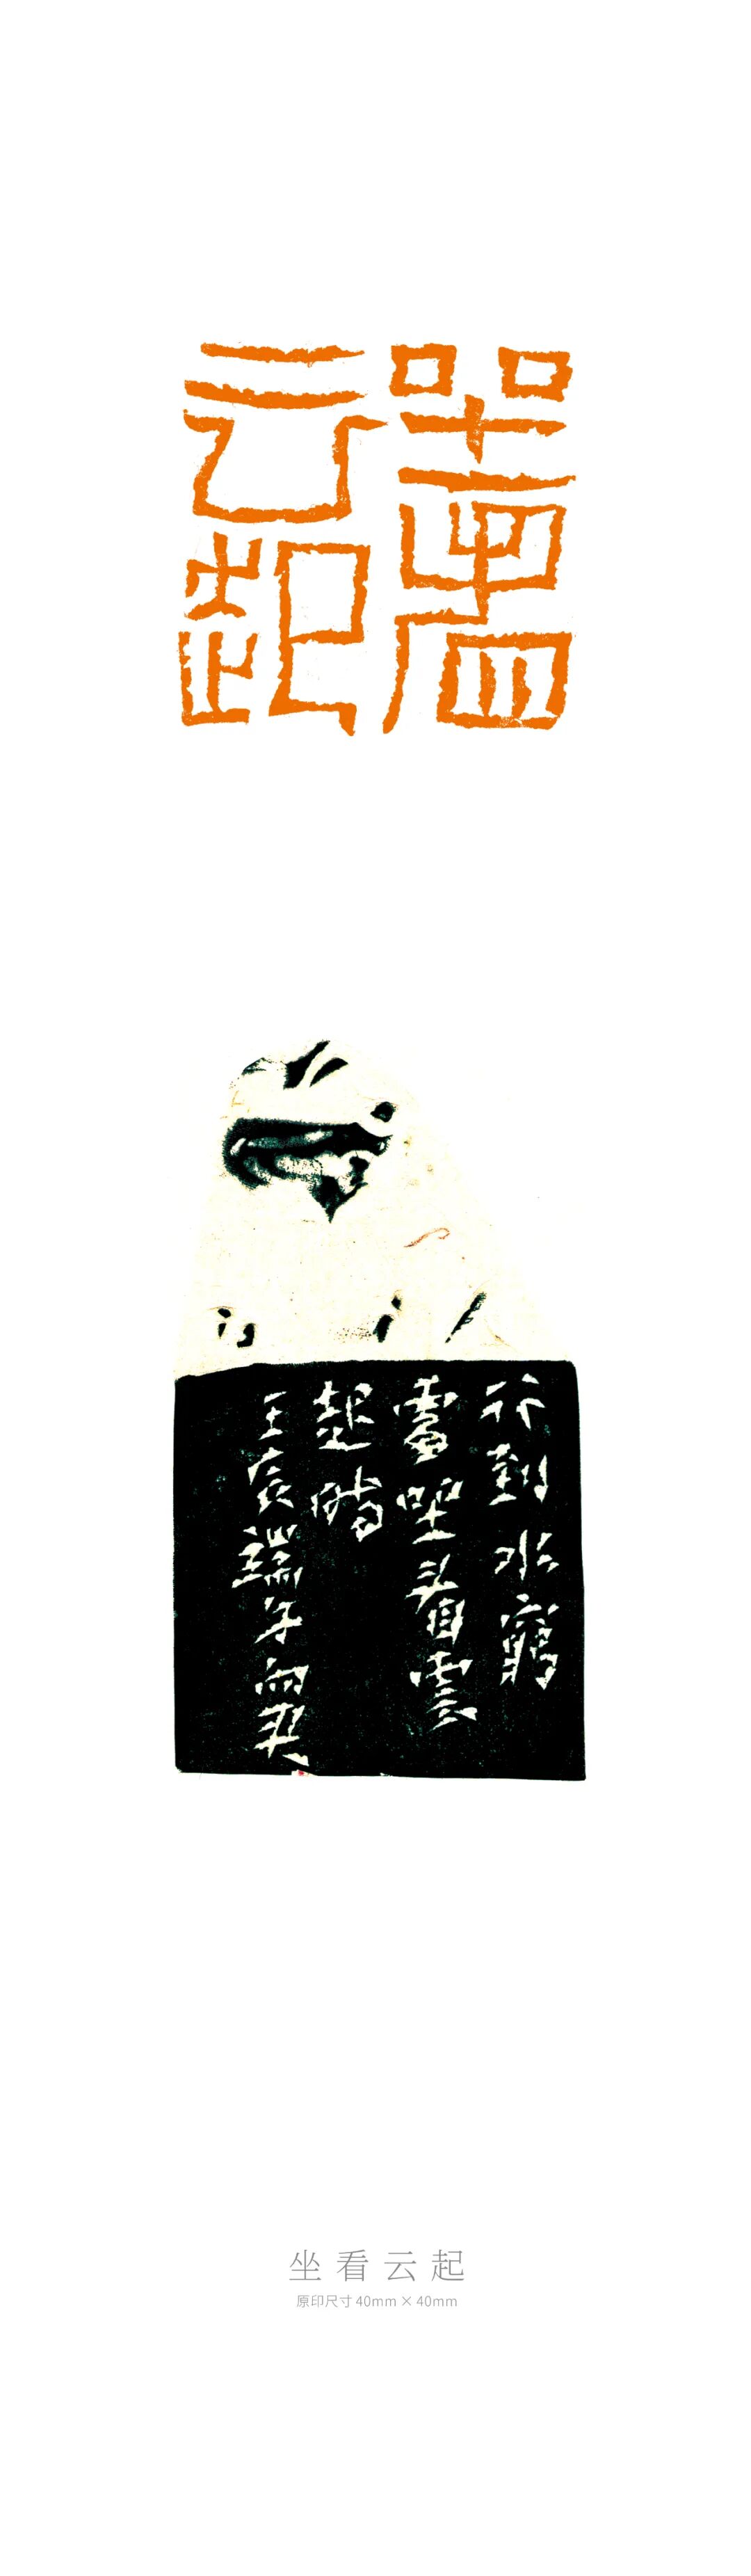 坐看
云起
行到水窮
處坐看雲
起時
辛亥端午
坐看云起
原印尺寸 40mm × 40mm